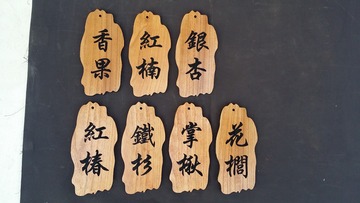 香果
紅楠
銀杏
紅椿
鐵杉
掌楸
花櫚